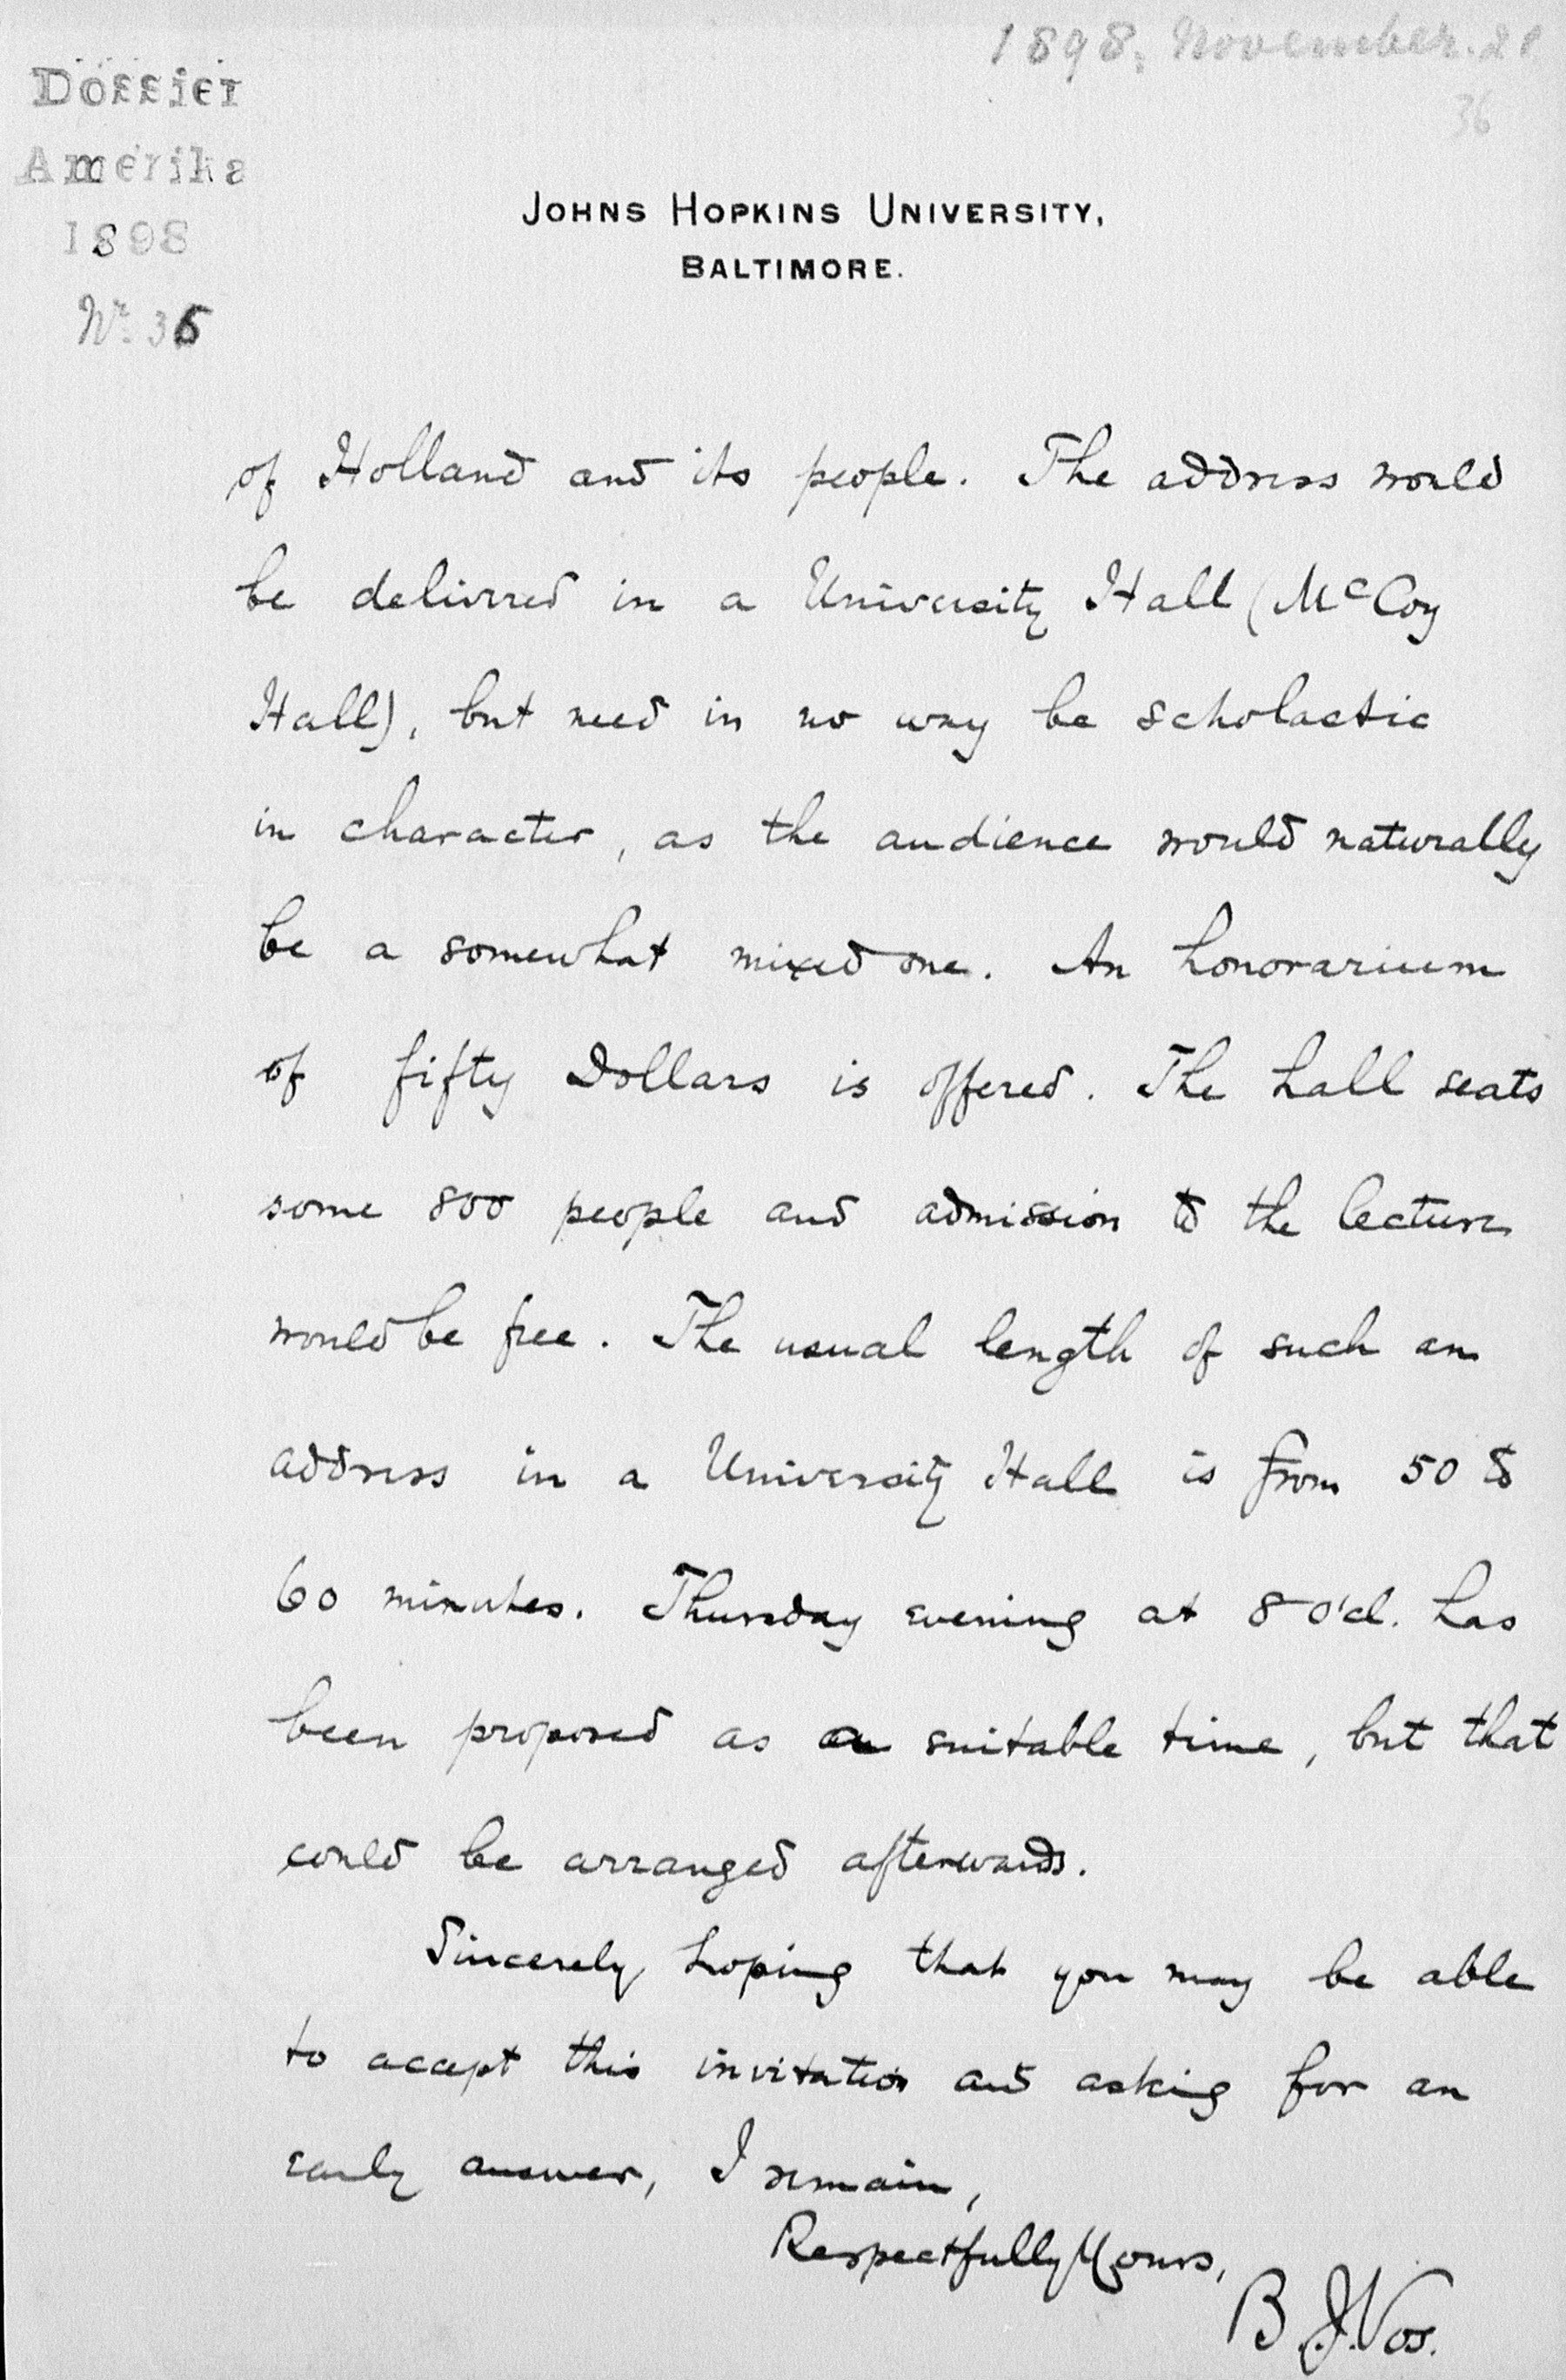 1898, November. 21
36
Dossier
Amerika
1898
Nr. 36
JOHNS HOPKINS UNIVERSITY,
BALTIMORE.
of Holland and its people. The address would
be delivered in a University Hall (McCoy
Hall), but need in no way be scholastic
in character, as the audience would naturally
be a somewhat mixed one. An honorarium
of fifty Dollars is offered. The hall seats
some 800 people and admission to the lecture
would be free. The usual length of such an
address in a University Hall is from 50 to
60 minutes. Thursday evening at 8 o'cl. has
been proposed as a suitable time, but that
could be arranged afterwards.
Sincerely hoping that you may be able
to accept this invitation and asking for an
early answer, I remain,
Respectfully Yours,
B. J. Vos.